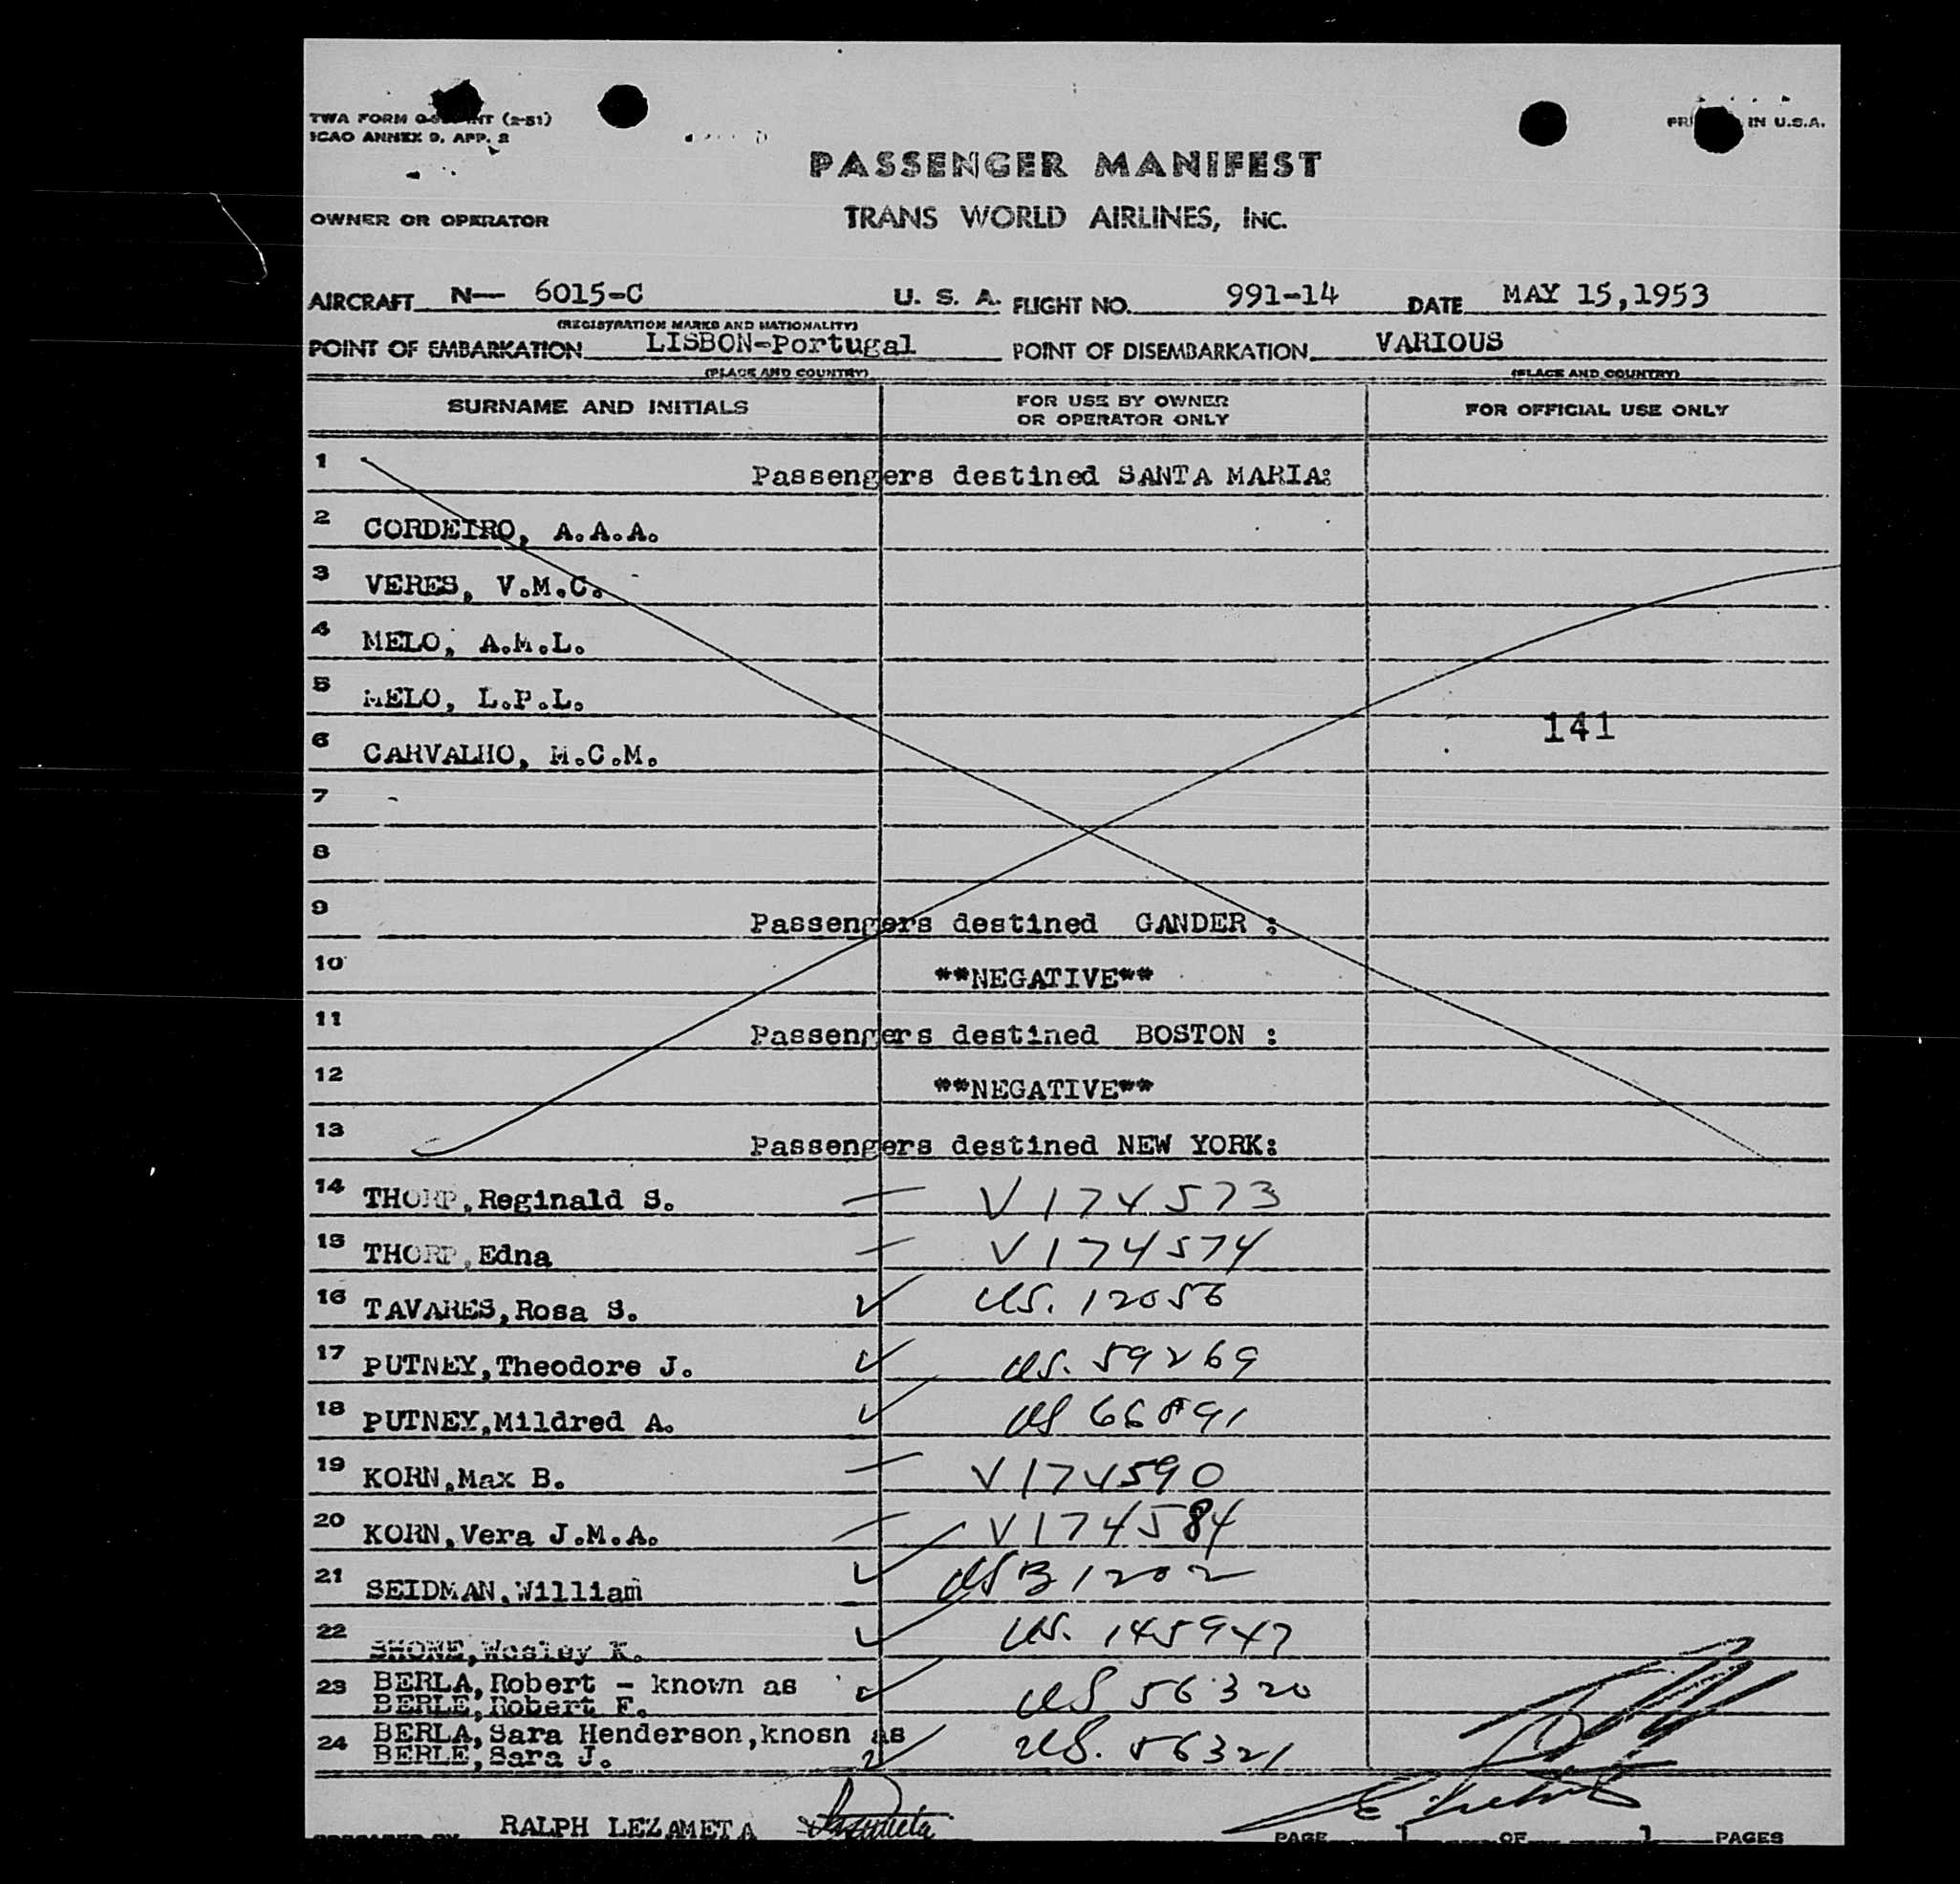 TWA FORM (2-51)
ICAO ANNEX 9, APP. 2
IN U.S.A.
PASSENGER MANIFEST
OWNER OR OPERATOR
TRANS WORLD AIRLINES, INC.
AIRCRAFT N— 6015-C U. S. A. FLIGHT NO. 991-14 DATE MAY 15,1953
(REGISTRATION MARKS AND NATIONALITY)
POINT OF EMBARKATION LISBON-Portugal POINT OF DISEMBARKATION VARIOUS
(PLACE AND COUNTRY) (PLACE AND COUNTRY)
SURNAME AND INITIALS FOR USE BY OWNER OR OPERATOR ONLY FOR OFFICIAL USE ONLY
1 Passengers destined SANTA MARIA:
2 CORDEIRO, A.A.A.
3 VERES, V.M.C.
4 MELO, A.M.L.
5 MELO, L.P.L.
141
6 CARVALHO, M.C.M.
7 -
8
9 Passengers destined GANDER :
10 **NEGATIVE**
11 Passengers destined BOSTON :
12 **NEGATIVE**
13 Passengers destined NEW YORK:
14 THORP,Reginald S. V 174573
15 THORP,Edna V 174574
16 TAVARES,Rosa S. US. 12056
17 PUTNEY,Theodore J. US. 59269
18 PUTNEY,Mildred A. US 66891
19 KORN,Max B. V 174590
20 KORN,Vera J.M.A. V 174584
21 SEIDMAN,William US B 1202
22 SHONE,Wesley K. US. 145947
23 BERLA,Robert - known as US 56320
BERLE,Robert F.
24 BERLA,Sara Henderson,knosn as US. 56321
BERLE,Sara J.
PREPARED BY RALPH LEZAMETA
PAGE 1 OF 1 PAGES